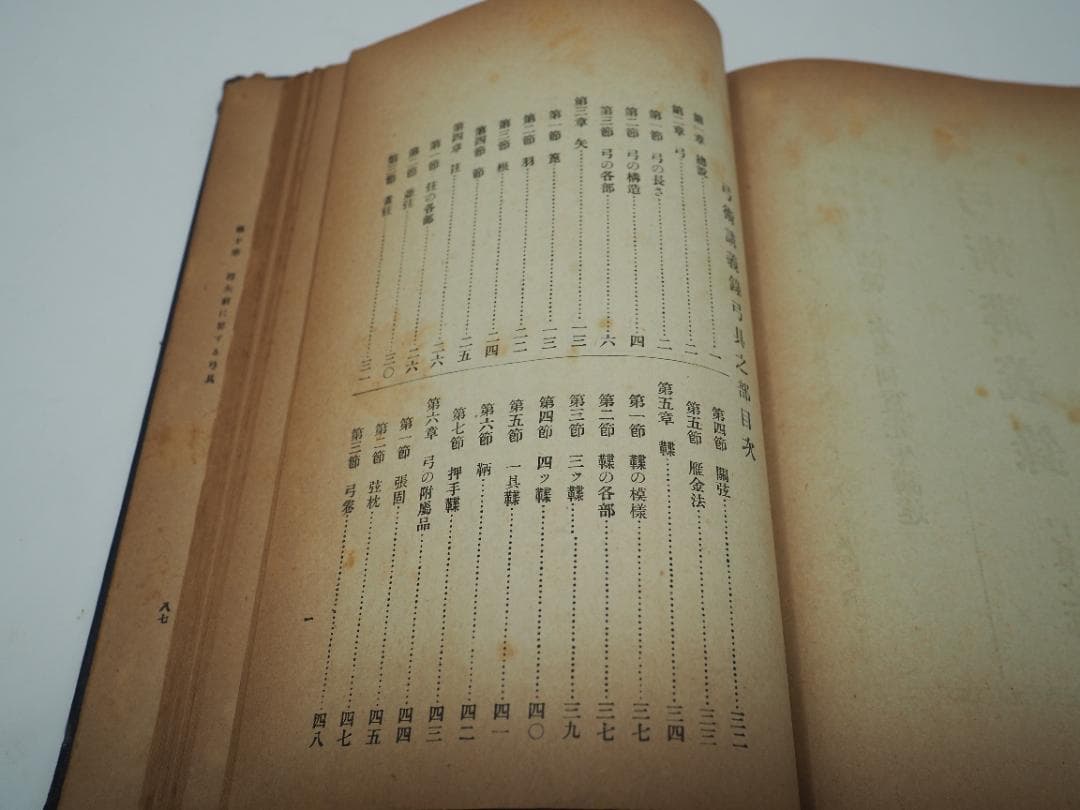 弓術講義錄弓具之部目次
第一章 總說……一
第二章 弓……二
第一節 弓の長さ……二
第二節 弓の構造……四
第三節 弓の各部……六
第三章 矢……一三
第一節 箆……一三
第二節 羽……二二
第三節 根……二四
第四節 節……二五
第四章 弦……二六
第一節 弦の各部……二六
第二節 弦……三〇
第三節 弦……三二
第四節 關弦……三二
第五節 雁金法……三三
第五章 鞢……三四
第一節 鞢の模樣……三七
第二節 鞢の各部……三七
第三節 三ツ鞢……三九
第四節 四ッ鞢……四〇
第五節 一具鞢……四一
第六節 鞆……四二
第七節 押手鞢……四三
第六章 弓の附屬品……四四
第一節 張固……四五
第二節 弦枕……四七
第三節 弓卷……四八
一
第十章 に關する弓具
八七